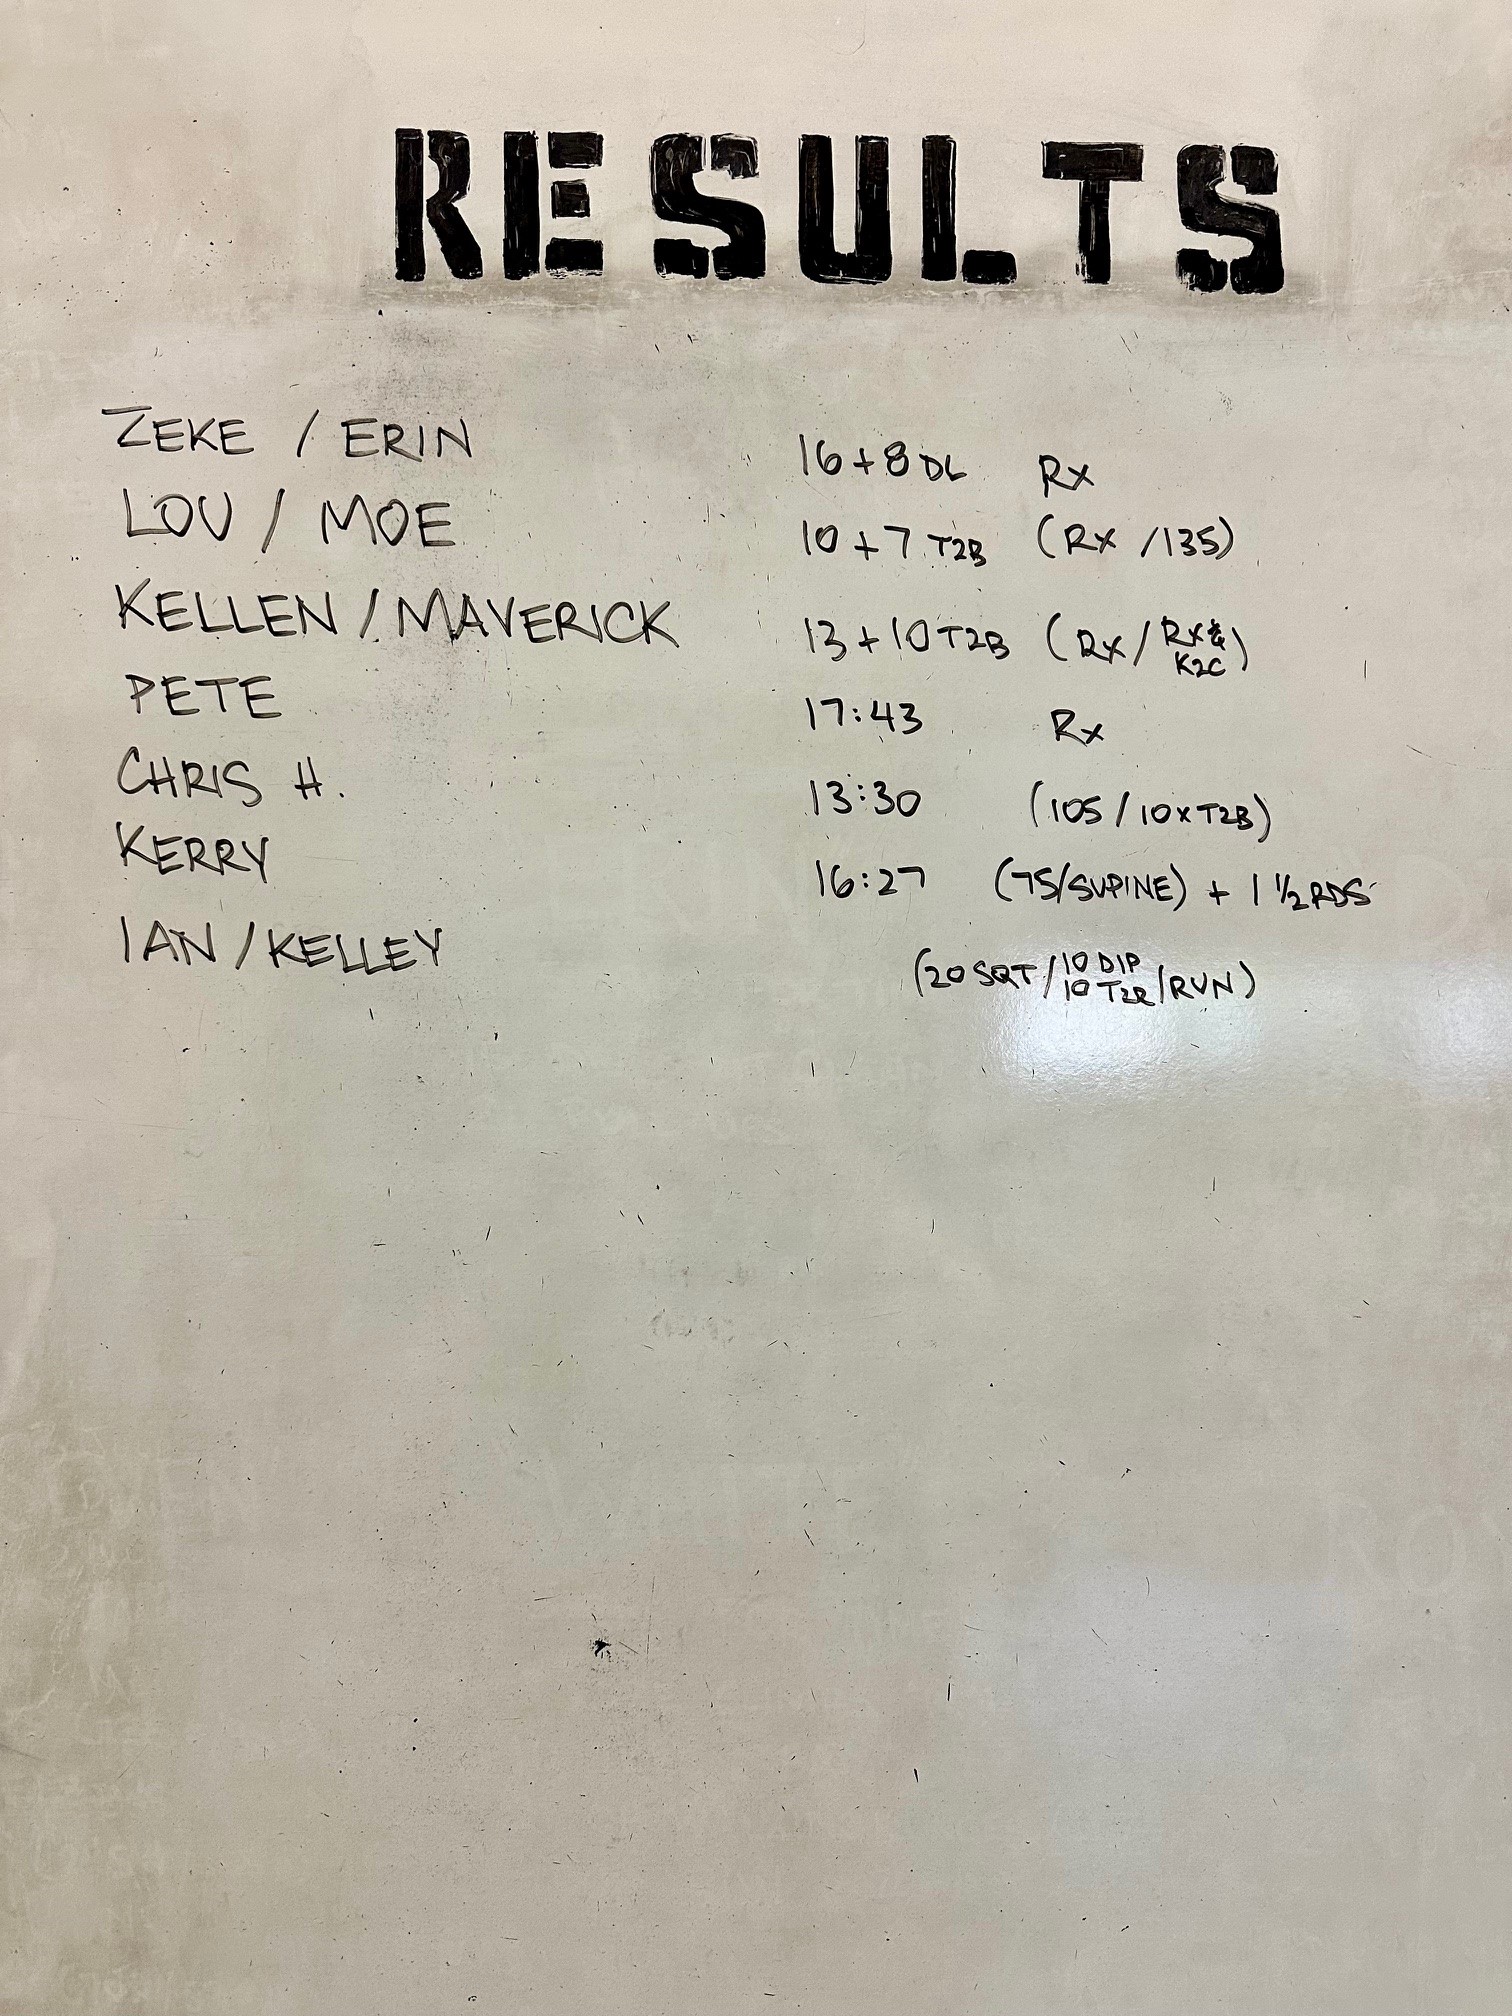 RESULTS
ZEKE / ERIN 16+8 DL Rx
LOU / MOE 10+7 T2B (Rx /135)
KELLEN / MAVERICK 13+10 T2B (Rx/ Rx & K2C)
PETE 17:43 Rx
CHRIS H. 13:30 (105 / 10xT2B)
KERRY 16:27 (75/SUPINE) + 1 1/2 RDS
IAN / KELLEY (20 SQT / 10 DIP 10 T2R / RUN)